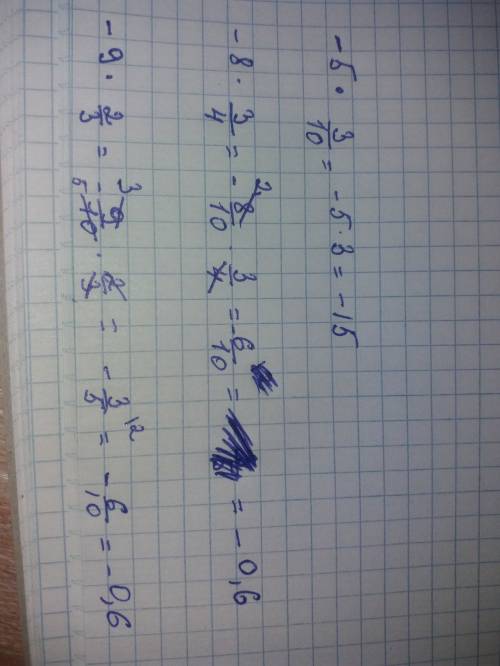 -5 · 3/10 = -5 · 3 = -15
-8 · 3/4 = -8/10 · 3/4 = -6/10 = = -0,6
-9 · 2/3 = -9/10 · 2/3 = -3/5 \2 = -6/10 = -0,6